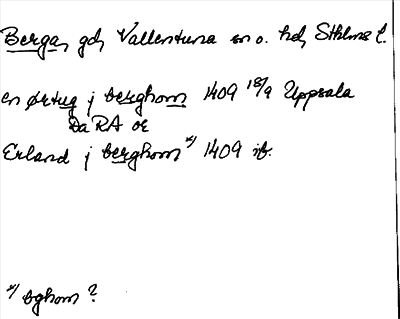 Berga, gd, Vallentuna sn o. hd, Sthlms l.
en ørtug j berghom 1409 18/9 Uppsala
DaRA or
Erland j berghom x) 1409 ib.
x) bghom ?